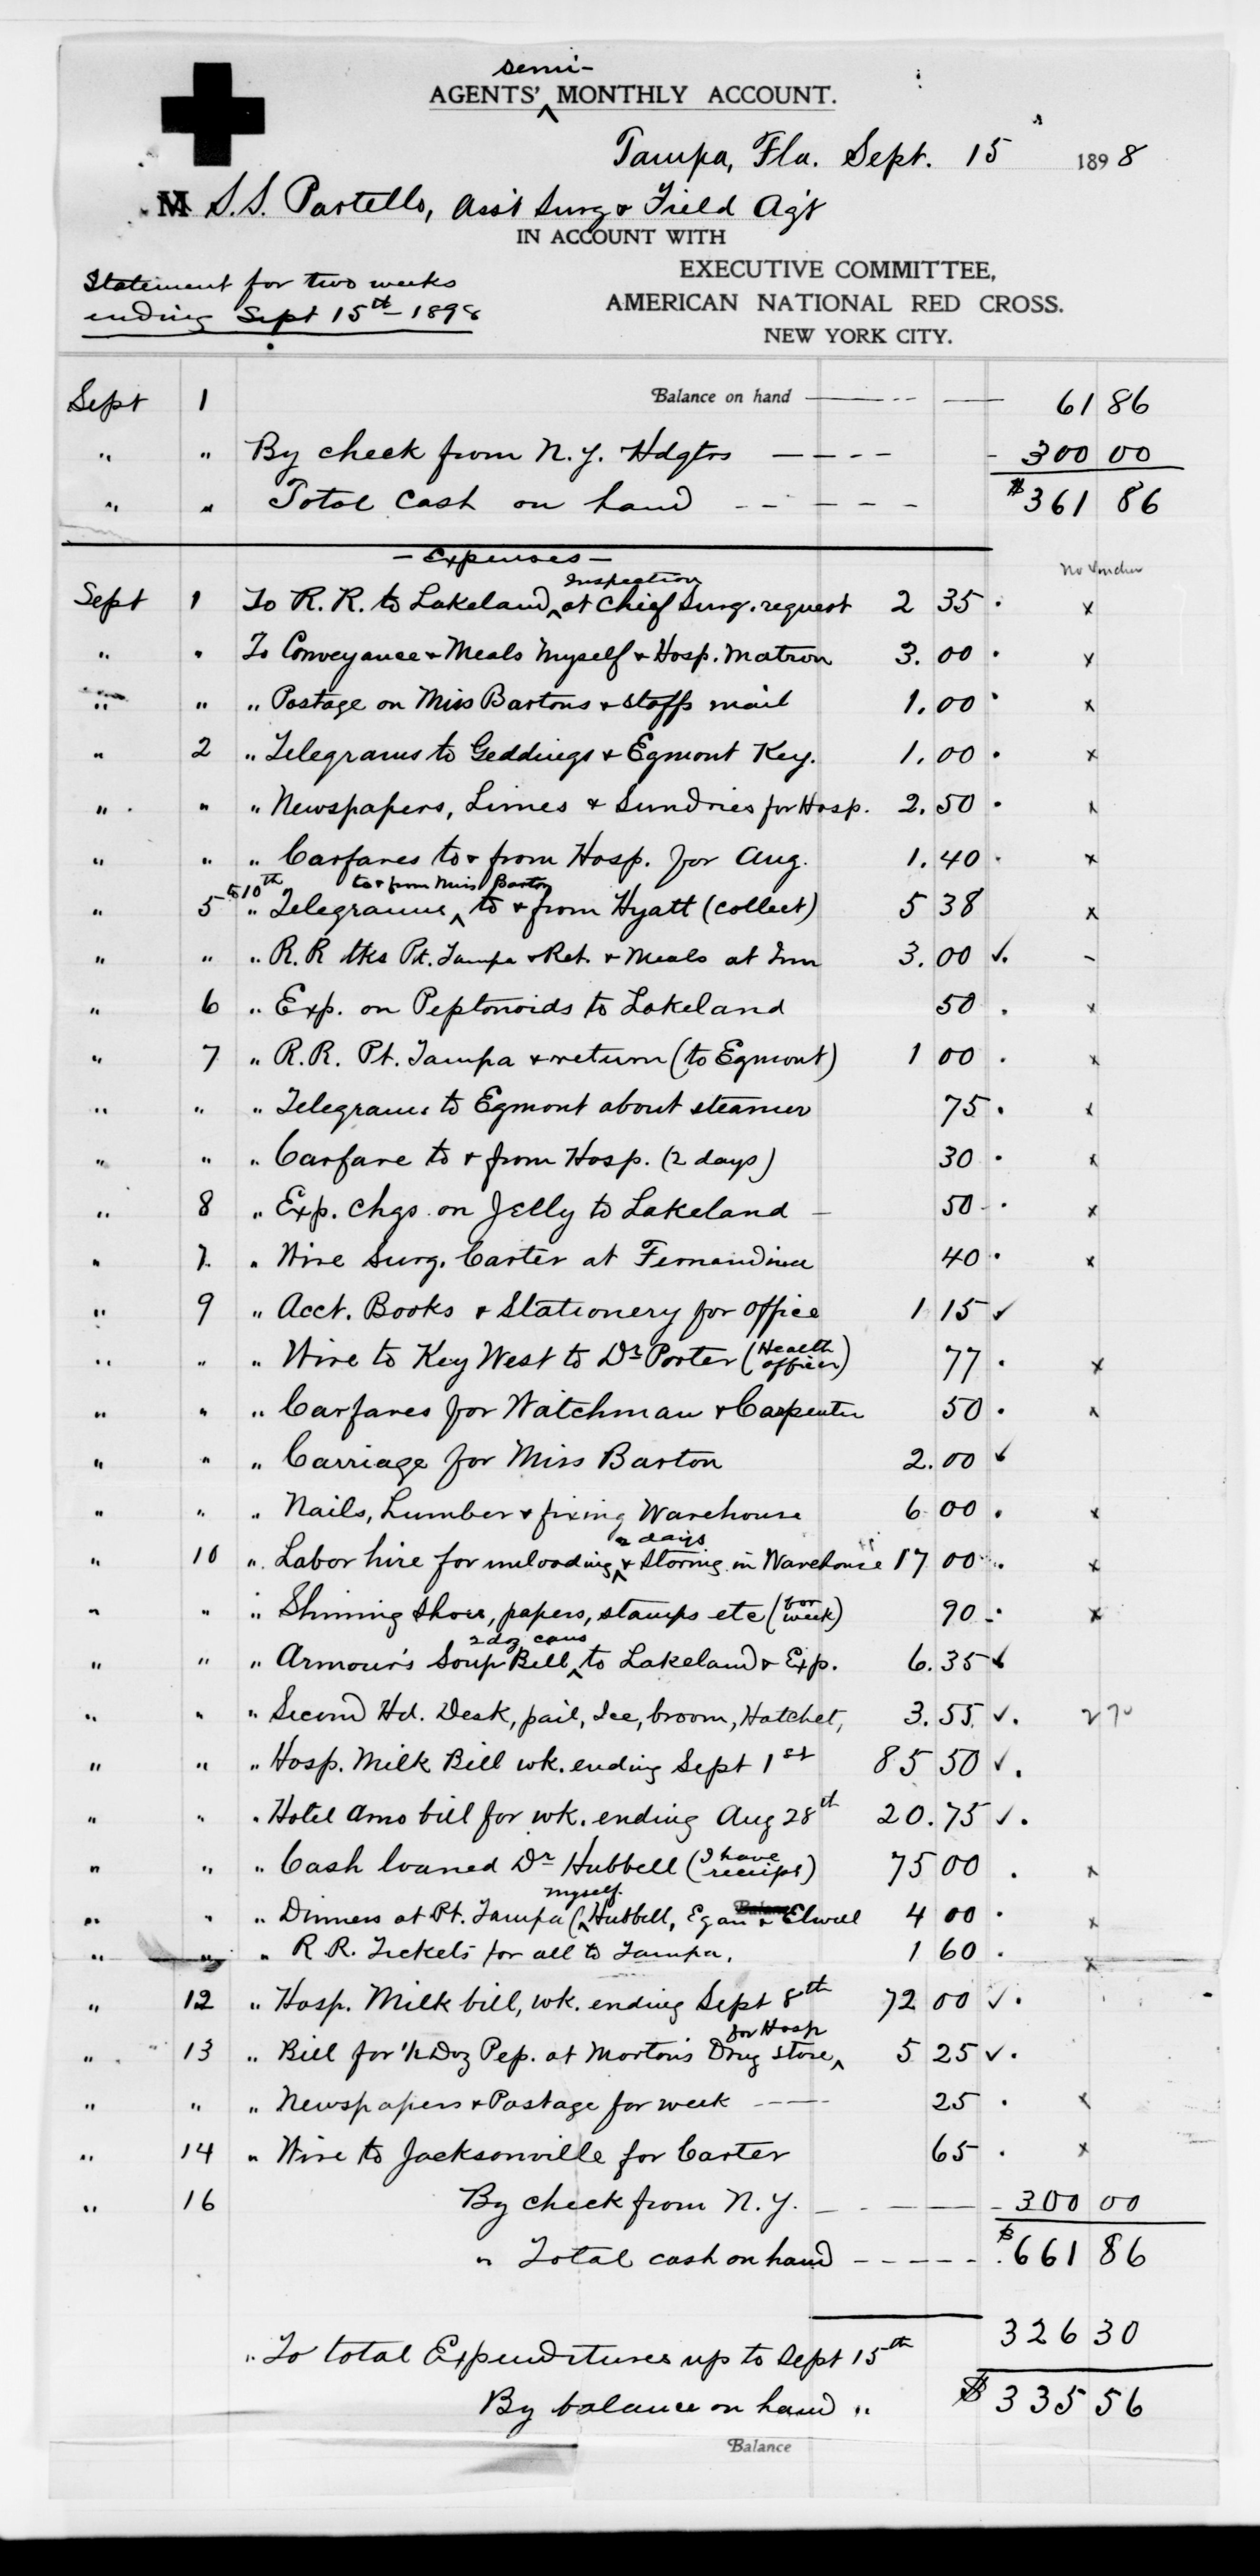 semi-
AGENTS' ^ MONTHLY ACCOUNT.
Tampa, Fla. Sept. 15 1898
M S.S. Partello, Ass't Surg & Field Ag't
IN ACCOUNT WITH
EXECUTIVE COMMITTEE,
AMERICAN NATIONAL RED CROSS.
NEW YORK CITY.
Statement for two weeks
ending Sept 15th - 1898
Sept 1 Balance on hand 61 86
" " By check from N.Y. Hdqtrs 300 00
" " Total Cash on hand $361 86
- Expenses -
no voucher
Inspection
Sept 1 To R.R. to Lakeland ^ at Chief Surg. request 2 35 . x
" " To Conveyance & Meals Myself & Hosp. Matron 3.00 . x
" " " Postage on Miss Bartons & Staffs mail 1.00 . x
" 2 " Telegrams to Geddings & Egmont Key. 1.00 . x
" " " Newspapers, Limes & Sundries for Hosp. 2.50 . x
" " " Carfares to & from Hosp. for Aug. 1.40 . x
to & from Miss Barton
" 5 to 10th " Telegrams ^ to & from Hyatt (collect) 5 38 x
" " " R.R tks Pt. Tampa & Ret. & Meals at Inn 3.00 ✓. -
" 6 " Exp. on Peptonoids to Lakeland 50 . x
" 7 " R.R. Pt. Tampa & return (to Egmont) 1 00 . x
" " " Telegrams to Egmont about steamer 75 . x
" " " Carfare to & from Hosp. (2 days) 30 . x
" 8 " Exp. chgs. on Jelly to Lakeland - 50 . x
" 7. " Wire Surg. Carter at Fernandina 40 . x
" 9 " Acct. Books & Stationery for office 1 15 ✓
" " " Wire to Key West to Dr Porter (Health officer) 77 . x
" " " Carfares for Watchman & Carpenter 50 . x
" " " Carriage for Miss Barton 2.00 ✓
" " " Nails, Lumber & fixing Warehouse 6 00 . x
2 days
" 10 " Labor hire for unloading ^ & Storing in Warehouse 17 00 . x
" " " Shining Shoes, papers, stamps etc (for week) 90 . x
2 doz cans
" " " Armour's Soup Bill ^ to Lakeland & Exp. 6.35 ✓
" " " Second Hd. Desk, pail, Ice, broom, Hatchet, 3.55 ✓. 2 70
" " " Hosp. Milk Bill wk. ending Sept 1st 85 50 ✓.
" " " Hotel Arno bill for wk. ending Aug 28th 20.75 ✓.
" " " Cash loaned Dr Hubbell (I have receipt) 75 00 . x
myself.
" " " Dinners at Pt. Tampa (^ Hubbell, Egan & Elwell 4 00 . x
" " " R.R. Tickets for all to Tampa. 1 60 . x
" 12 " Hosp. Milk bill, wk. ending Sept 8th 72 00 ✓.
for Hosp
" 13 " Bill for ½ Doz Pep. at Morton's Drug Store ^ 5 25 ✓.
" " " Newspapers & Postage for week 25 . x
" 14 " Wire to Jacksonville for Carter 65 . x
" 16 By check from N.Y. 300 00
" Total cash on hand $661 86
" To total Expenditures up to Sept 15th 326 30
By balance on hand " $335 56
Balance